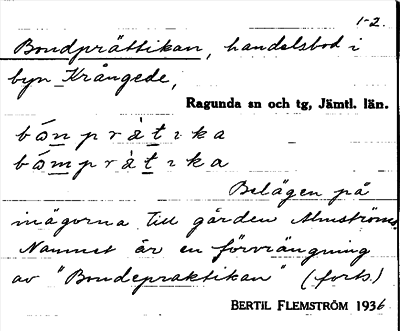 1-2.
Bondprättikan, handelsbod i
byn Krångede,
Ragunda sn och tg, Jämtl. län.
bó̄n pràt ıka
bó̄m pràt ıka
Belägen på
inägorna till gården Almströms.
Namnet är en förvrängning
av "Bondepraktikan" (forts.)
BERTIL FLEMSTRÖM 1936